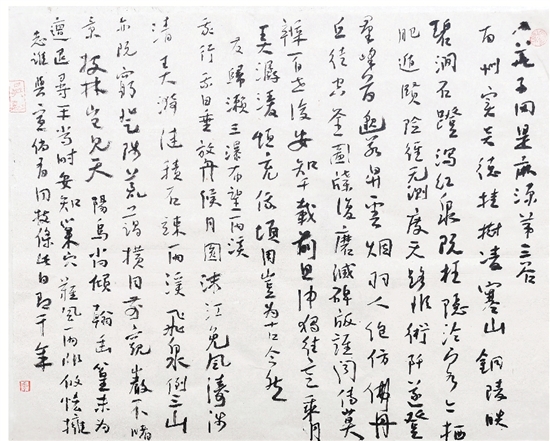 入華子岡是麻源第三谷
南州實炎德桂樹凌寒山銅陵映
碧澗石磴瀉紅泉既枉隱淪客亦棲
肥遁賢險徑無測度天路非術阡遂登
群峰首邈若昇雲烟羽人絕仿佛丹
丘徒空筌圖牒復磨滅碑版誰聞傳莫
辨百世後安知千載前且申獨往意乘月
弄潺湲恒充俄頃用豈為古今然
發歸瀨三瀑布望兩溪
我行乘日垂放舟候月圓沫江免風濤涉
清弄漪漣積石竦兩溪飛泉倒三山
亦既窮登陟荒藹橫目前窺巖不睹
景披林豈見天陽烏尚傾翰幽篁未為
邅退尋平常時安知巢穴難風雨非攸吝擁
志誰與宣倘有同枝條此日即千年